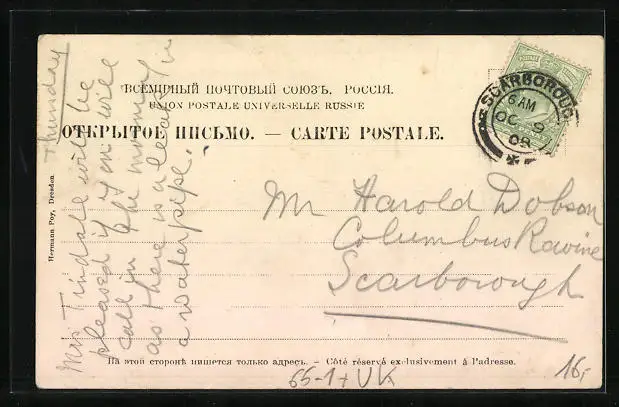 ВСЕМІРНЫЙ ПОЧТОВЫЙ СОЮЗЪ. РОССІЯ.
UNION POSTALE UNIVERSELLE RUSSIE
ОТКРЫТОЕ ПИСЬМО. — CARTE POSTALE.
SCARBOROUGH
6 AM
OC 9
08
Thursday
Mrs Tindall will be
pleased if you will
call in the morning
as there is a leak in
a waterpipe.
Mr Harold Dobson
Columbus Ravine
Scarborough
Hermann Poy, Dresden
На этой сторонѣ пишется только адресъ. – Côté réservé exclusivement à l'adresse.
65-1+ VK
16,-